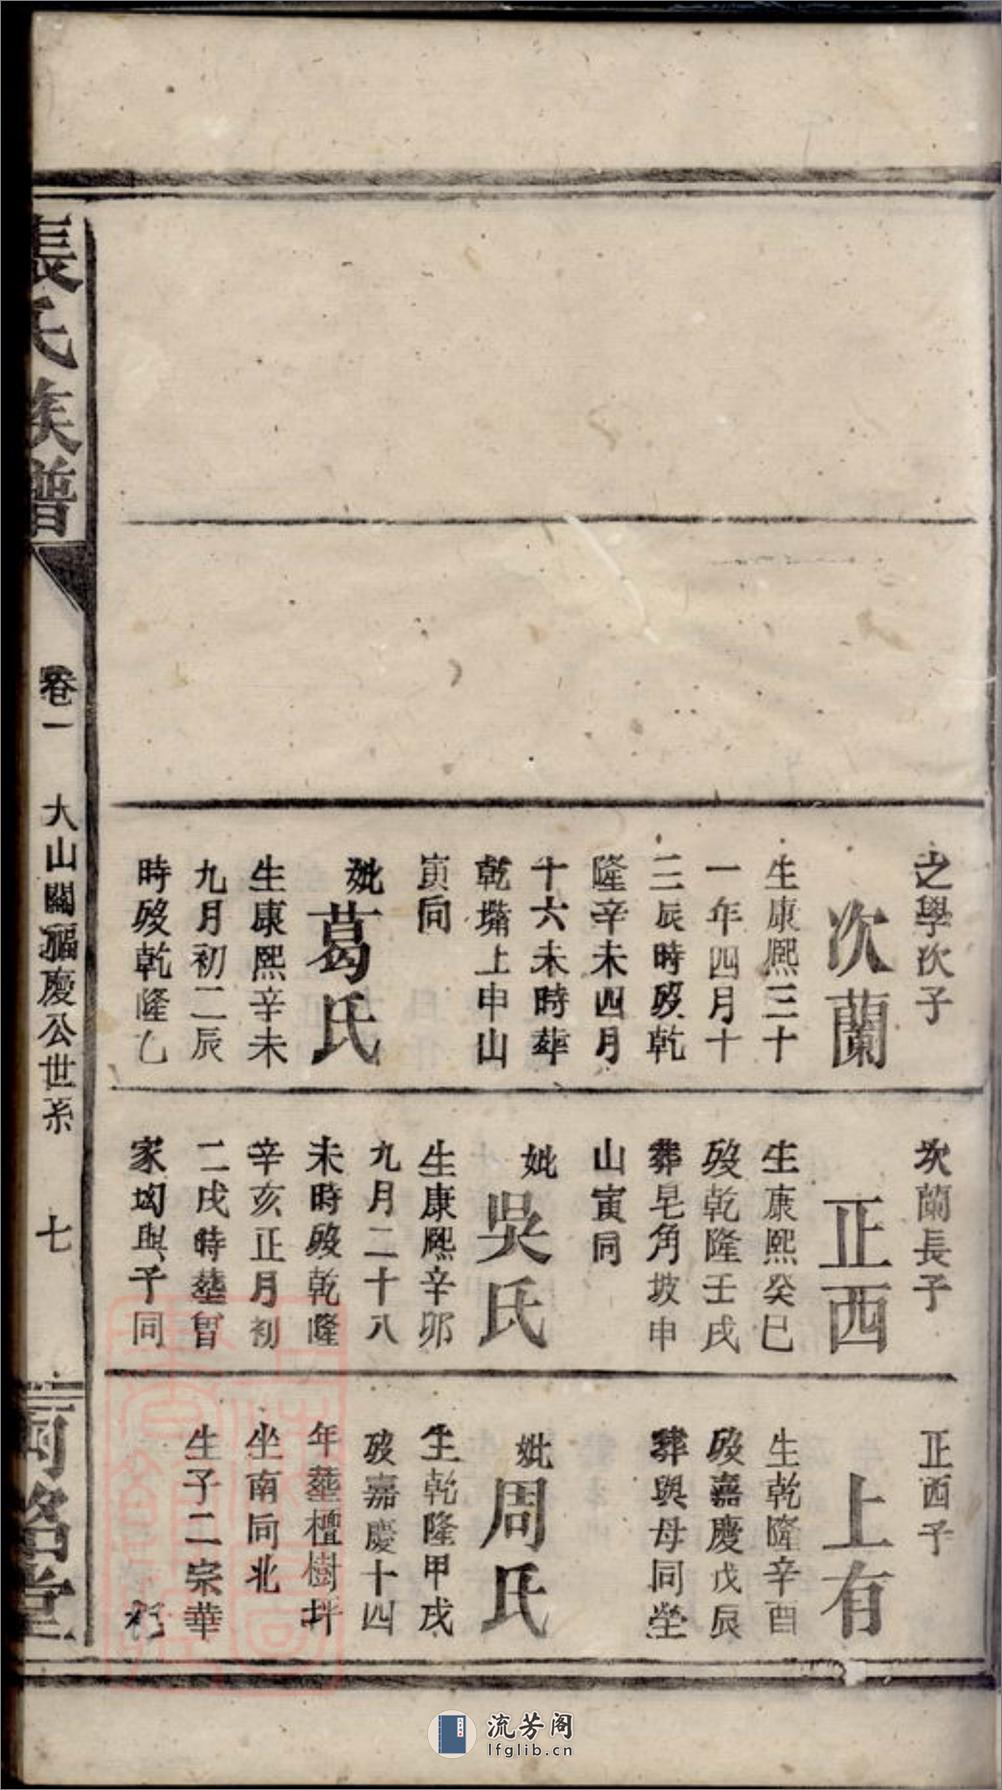 之學次子
次蘭
生康熙三十
一年四月十
二辰時歿乾
隆辛未四月
十六未時葬
乾塘上申山
寅向
妣
葛氏
生康熙辛未
九月初二辰
時歿乾隆乙
次蘭長子
正西
生康熙癸巳
歿乾隆壬戌
葬皂角坡申
山寅向
妣
吳氏
生康熙辛卯
九月二十八
未時歿乾隆
辛亥正月初
二戌時塟曾
家㘭與子同
正西子
上有
生乾隆辛酉
歿嘉慶戊辰
葬與母同塋
妣
周氏
生乾隆甲戌
歿嘉慶十四
年塟檀樹坪
坐南向北
生子二宗華
彩
張氏族譜
卷一
大山關福慶公世系
七
堂
流芳阁
lfglib.cn